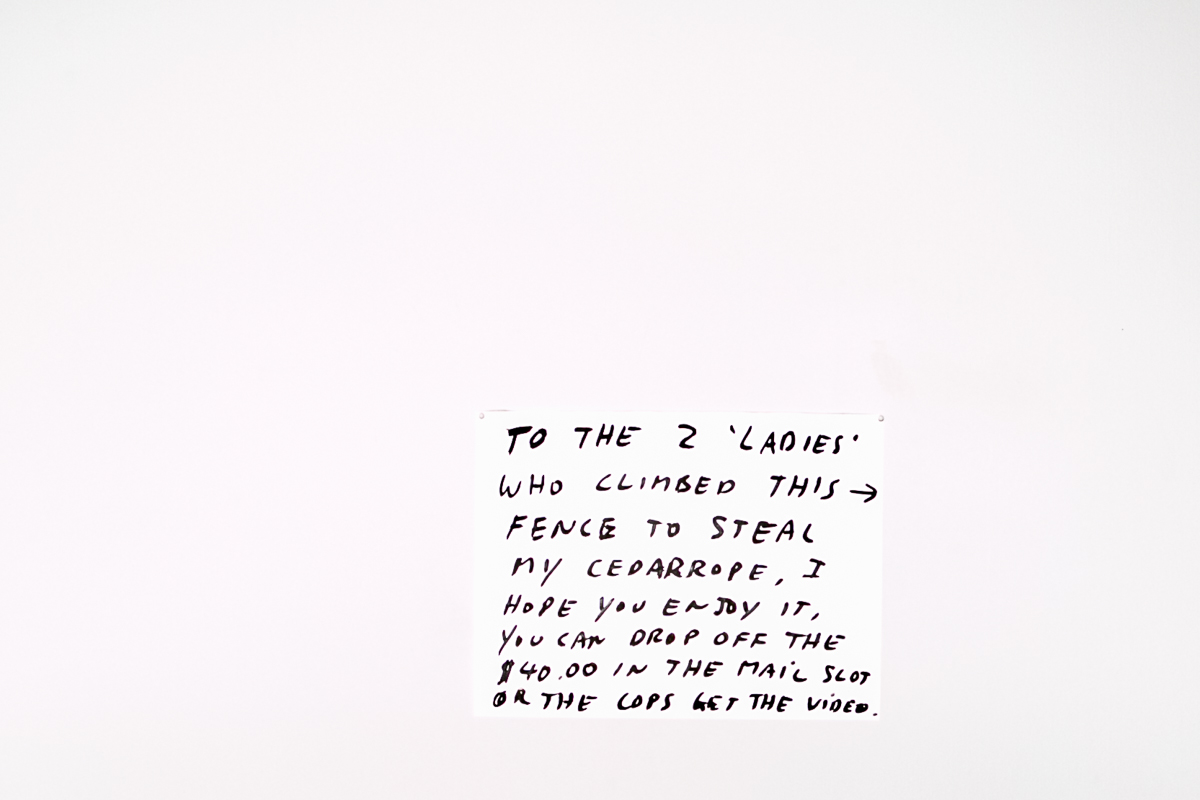 TO THE 2 'LADIES'
WHO CLIMBED THIS →
FENCE TO STEAL
MY CEDARROPE, I
HOPE YOU ENJOY IT,
YOU CAN DROP OFF THE
$40.00 IN THE MAIL SLOT
OR THE COPS GET THE VIDEO.